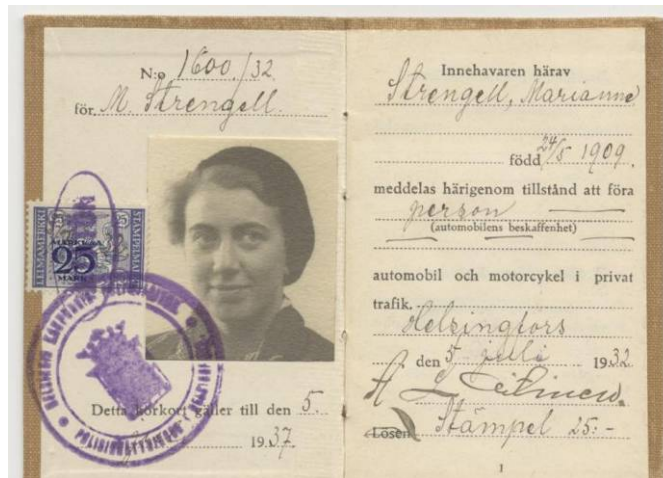 N:o 1600./32
för M. Strengell.
LEIMAMERKKI
STÄMPELMÄRKE
25
MARKKAA
MARK
Detta körkort gäller till den 5.
1937
Innehavaren härav
Strengell, Marianne
född 24/5 1909.
meddelas härigenom tillstånd att föra
person
(automobilens beskaffenhet)
automobil och motorcykel i privat
trafik.
Helsingfors
den 5 juli 1932
Lösen Stämpel 25:-
1